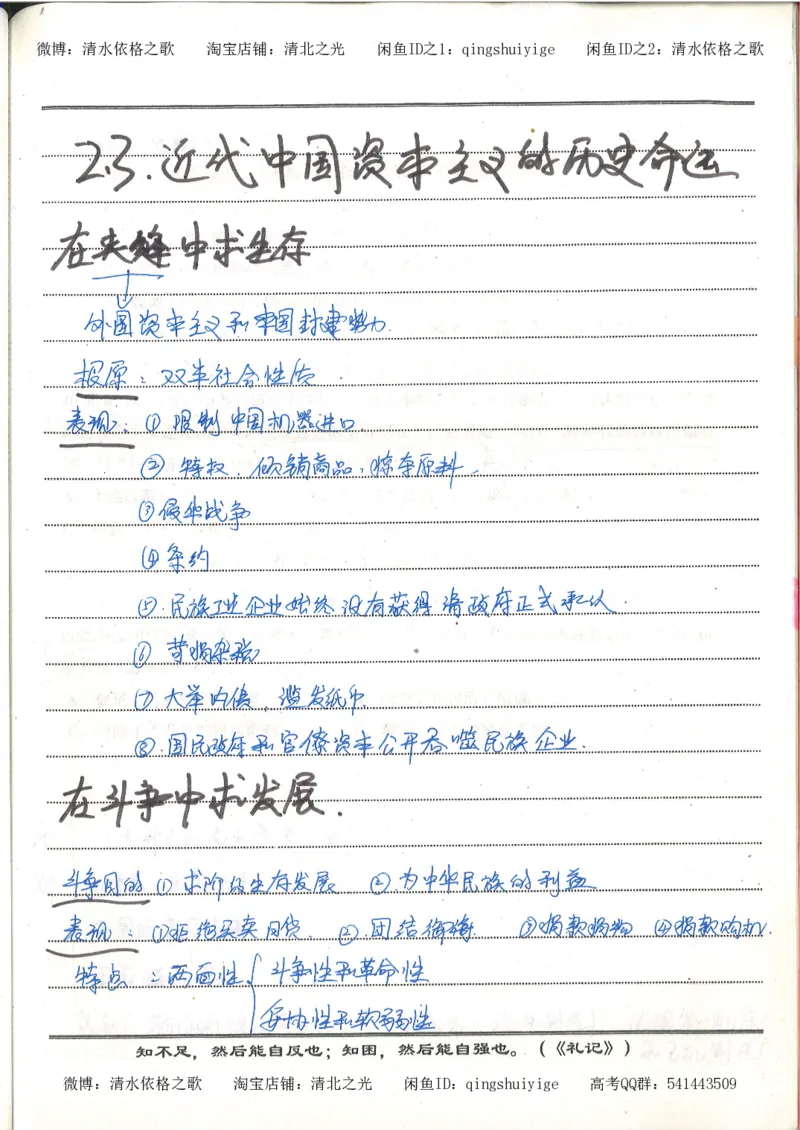 微博：清水依格之歌 淘宝店铺：清北之光 闲鱼ID之1：qingshuiyige 闲鱼ID之2：清水依格之歌
2.3.近代中国资本主义的历史命运
在夹缝中求生存
外国资本主义和中国封建势力.
根源：双半社会性质.
表现：①限制中国机器进口
②特权，倾销商品，掠夺原料.
③侵华战争
④条约
⑤.民族工业企业始终没有获得清政府正式承认.
⑥苛捐杂税
⑦大举内债，滥发纸币
⑧.国民政府和官僚资本公开吞噬民族企业.
在斗争中求发展.
斗争目的①求阶级生存发展 ②.为中华民族的利益
表现：①拒绝买卖日货. ②.团结御侮 ③捐款捐物 ④捐款购机.
特点：两面性{斗争性和革命性
妥协性和软弱性
知不足，然后能自反也；知困，然后能自强也。（《礼记》）
微博：清水依格之歌 淘宝店铺：清北之光 闲鱼ID：qingshuiyige 高考QQ群：541443509